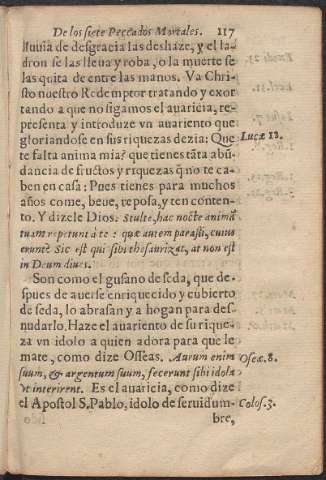 De los siete Peccados Mortales. 117
lluuia de desgracia las deshaze, y el la-
dron se las lleua y roba, o la muerte se
las quita de entre las manos. Va Chri-
sto nuestro Redemptor tratando y exor
tando a que no sigamos el auaricia, re-
presenta y introduze vn auariento que
gloriandose en sus riquezas dezia: Que
Lucæ 12.
te falta anima mia? que tienes tãta abũ
dancia de fructos y riquezas q̃ no te ca-
ben en casa: Pues tienes para muchos
años come, beue, reposa, y ten conten-
to. Y dizele Dios. Stulte, hac nocte animã
tuam repetunt à te: quæ autem parasti, cuius
erunt? Sic est qui sibi thesaurizat, at non est
in Deum diues.
Son como el gusano de seda, que de-
spues de auerse enriquecido y cubierto
de seda, lo abrasan y a hogan para des-
nudarlo. Haze el auariento de su rique-
za vn idolo a quien adora para que le
mate, como dize Osseas. Aurum enim
Oseæ. 8.
suum, & argentum suum, fecerunt sibi idola
vt interirent. Es el auaricia, como dize
el Apostol S. Pablo, idolo de seruidum-
Colos. 3.
bre,